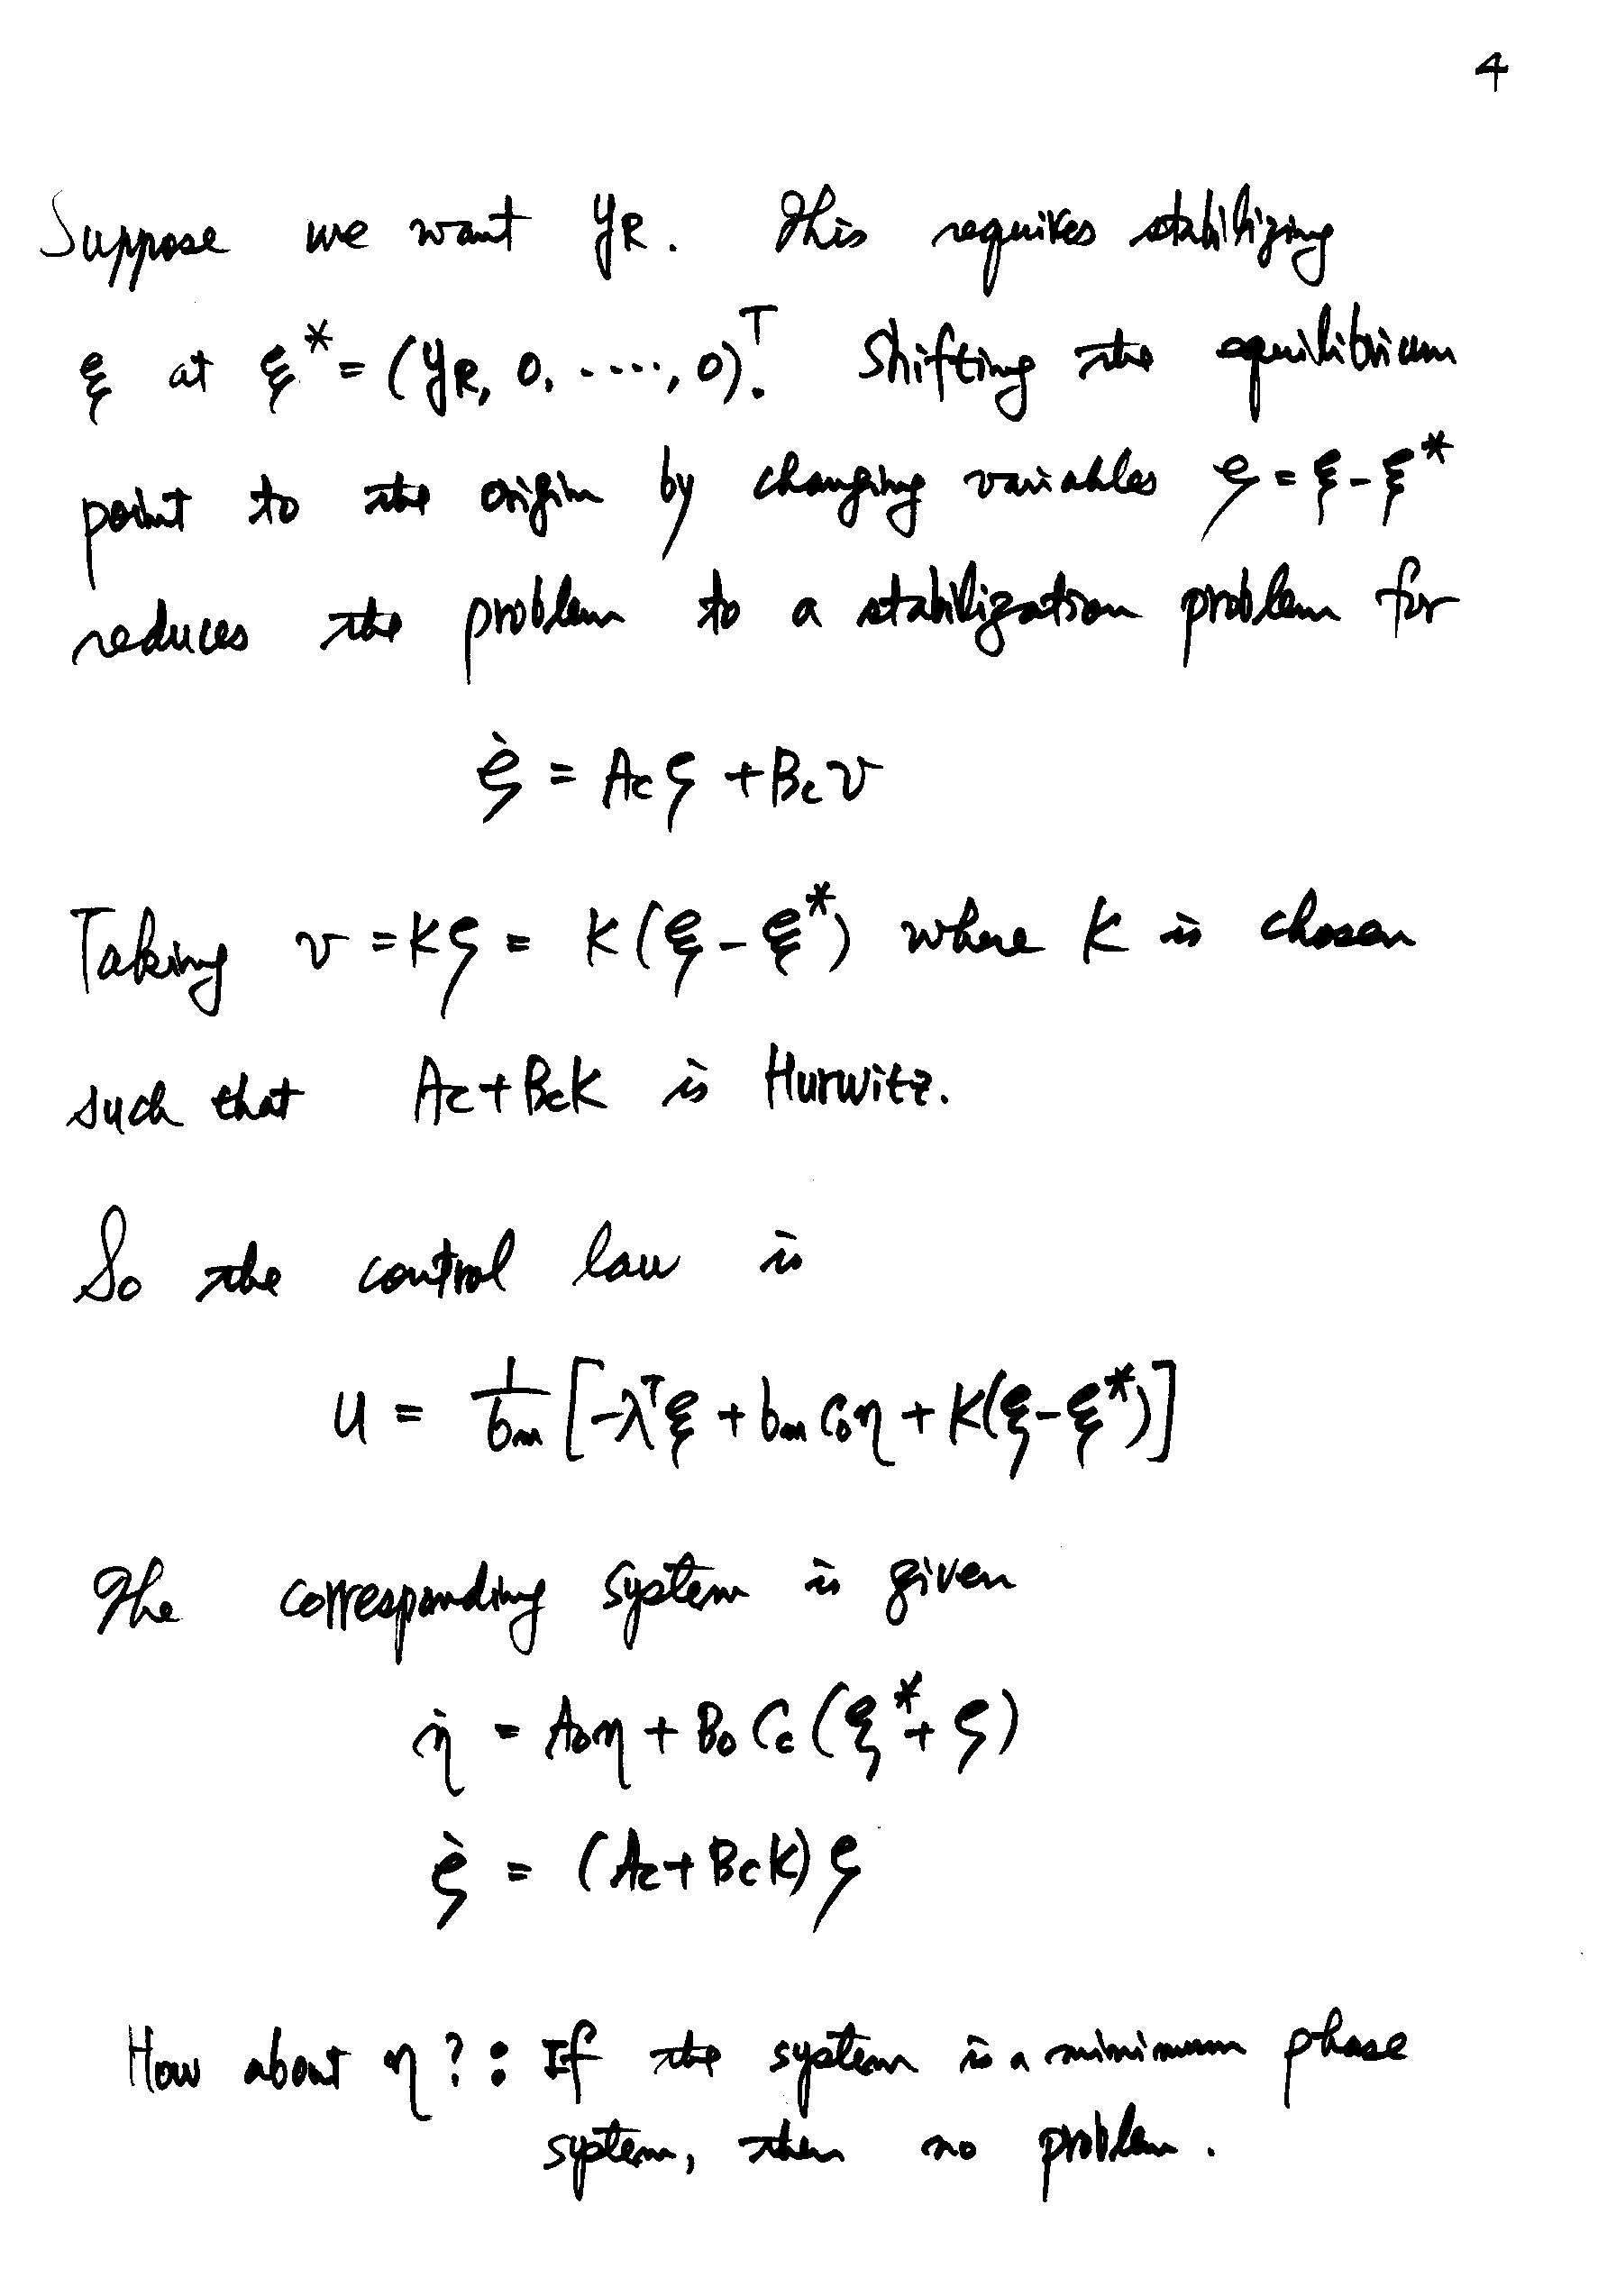 4
Suppose we want y_R. This requires stabilizing
ξ at ξ* = (y_R, 0, ····, 0)^T. Shifting the equilibrium
point to the origin by changing variables ζ = ξ - ξ*
reduces the problem to a stabilization problem for
ζ̇ = A_c ζ + B_c v
Taking v = Kζ = K(ξ - ξ*) where K is chosen
such that A_c + B_c K is Hurwitz.
So the control law is
u = 1/b_m [-λ^T ξ + b_m C_0 η + K(ξ - ξ*)]
The corresponding system is given
η̇ = A_0 η + B_0 C_c (ξ* + ζ)
ζ̇ = (A_c + B_c K) ζ
How about η? : If the system is a minimum phase
system, then no problem.